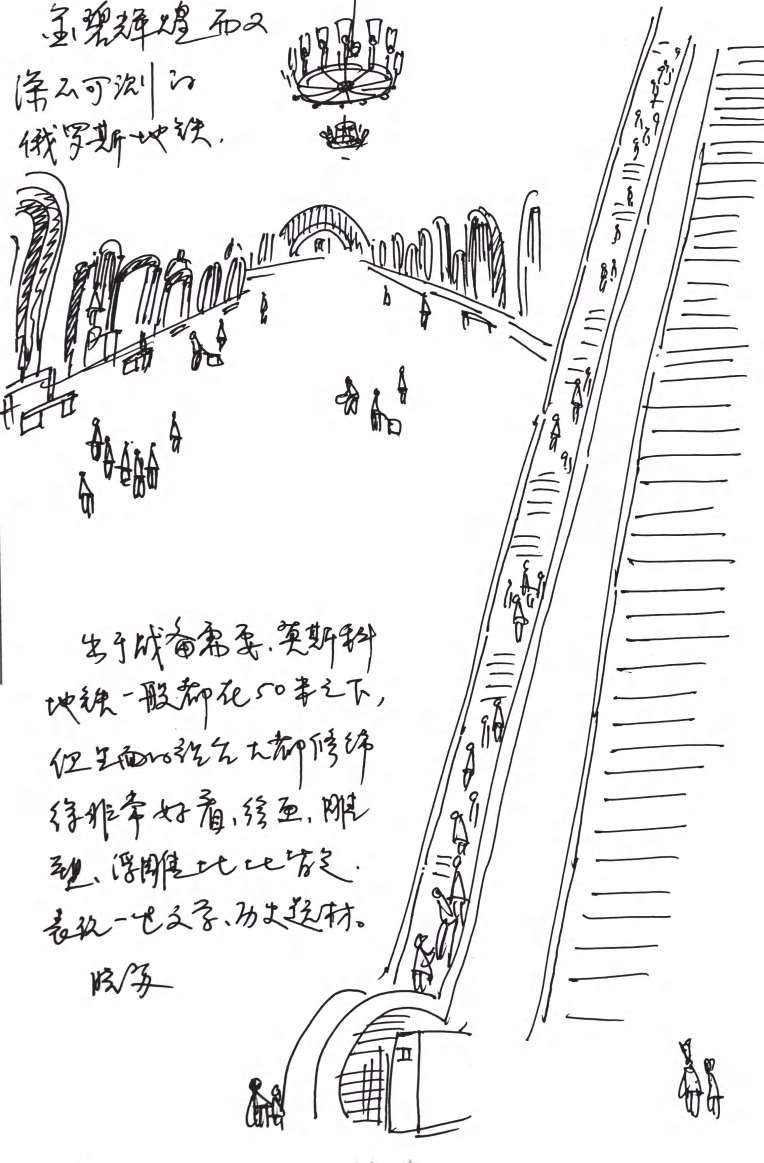 金碧辉煌而又
深不可测的
俄罗斯地铁.
出于战备需要、莫斯科
地铁一般都在50米之下,
但里面的站台大都修饰
得非常好看、绘画、雕
塑、浮雕比比皆是.
表现一些文学、历史题材。